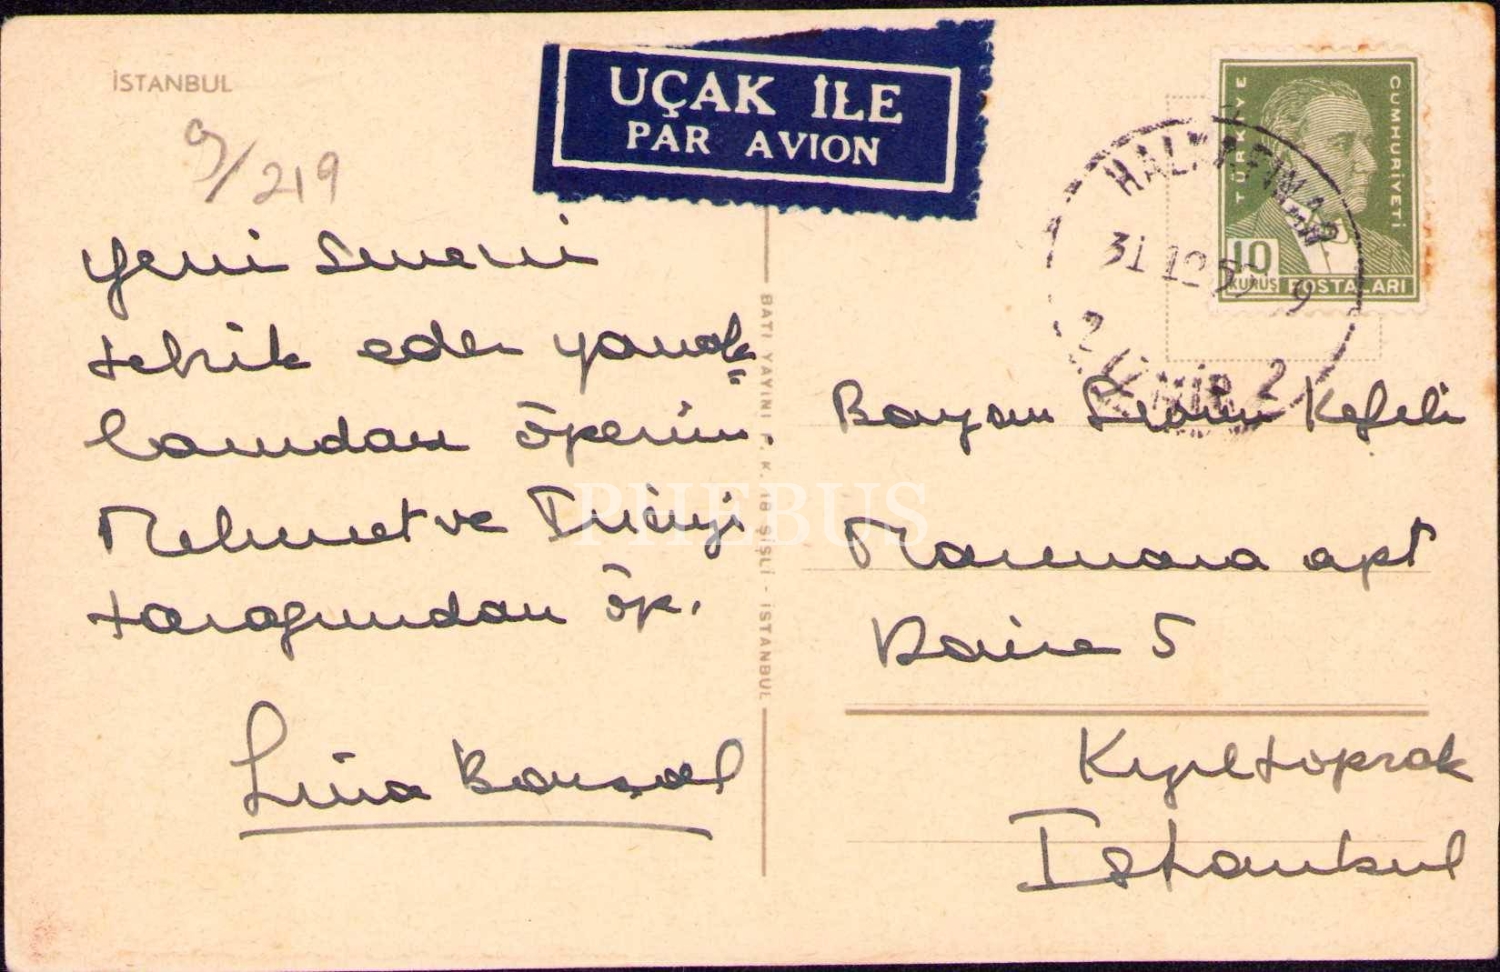 İSTANBUL
9/219
UÇAK İLE
PAR AVION
TÜRKİYE
CUMHURİYETİ
10
KURUŞ
POSTALARI
HALKAPINAR
31 12 9
İZMİR 2
Yeni Seneni
tebrik eder yanak
larından öperim.
Mehmet ve
tarafından öp.
BATI YAYINI P. K. 18 ŞİŞLİ - İSTANBUL
Bayan Kefeli
Marmara apt
Daire 5
Kızıltoprak
Istanbul
PHEBUS